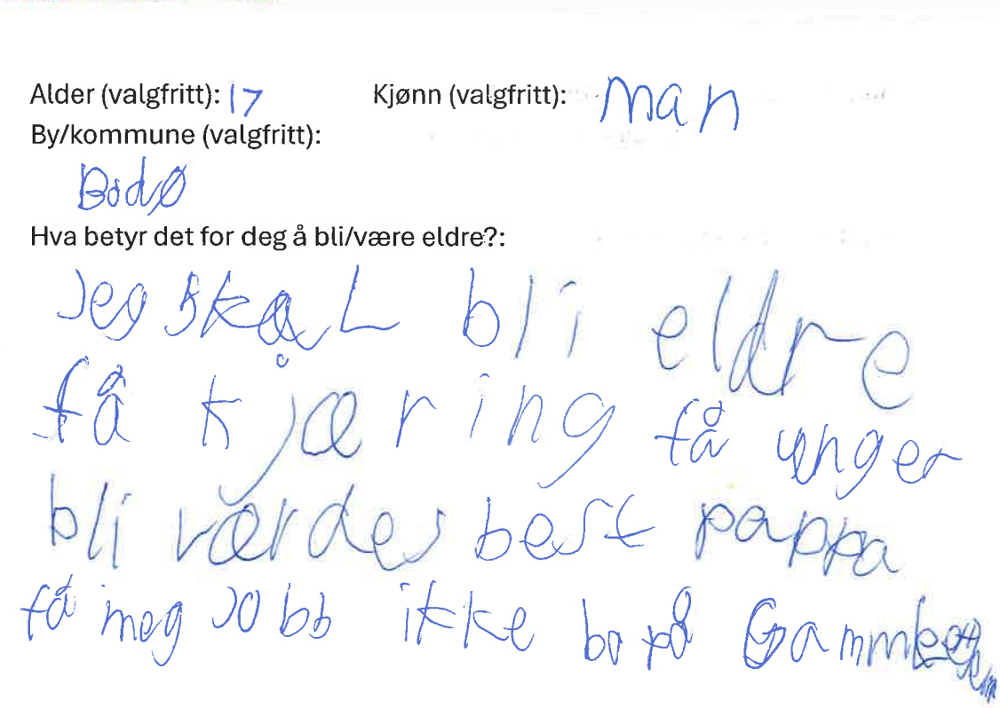 Alder (valgfritt): 17 Kjønn (valgfritt): man
By/kommune (valgfritt):
Bodø
Hva betyr det for deg å bli/være eldre?:
Jeg skal bli eldre
få kjæring få unger
bli værdes best pappa
få meg jobb ikke bo på